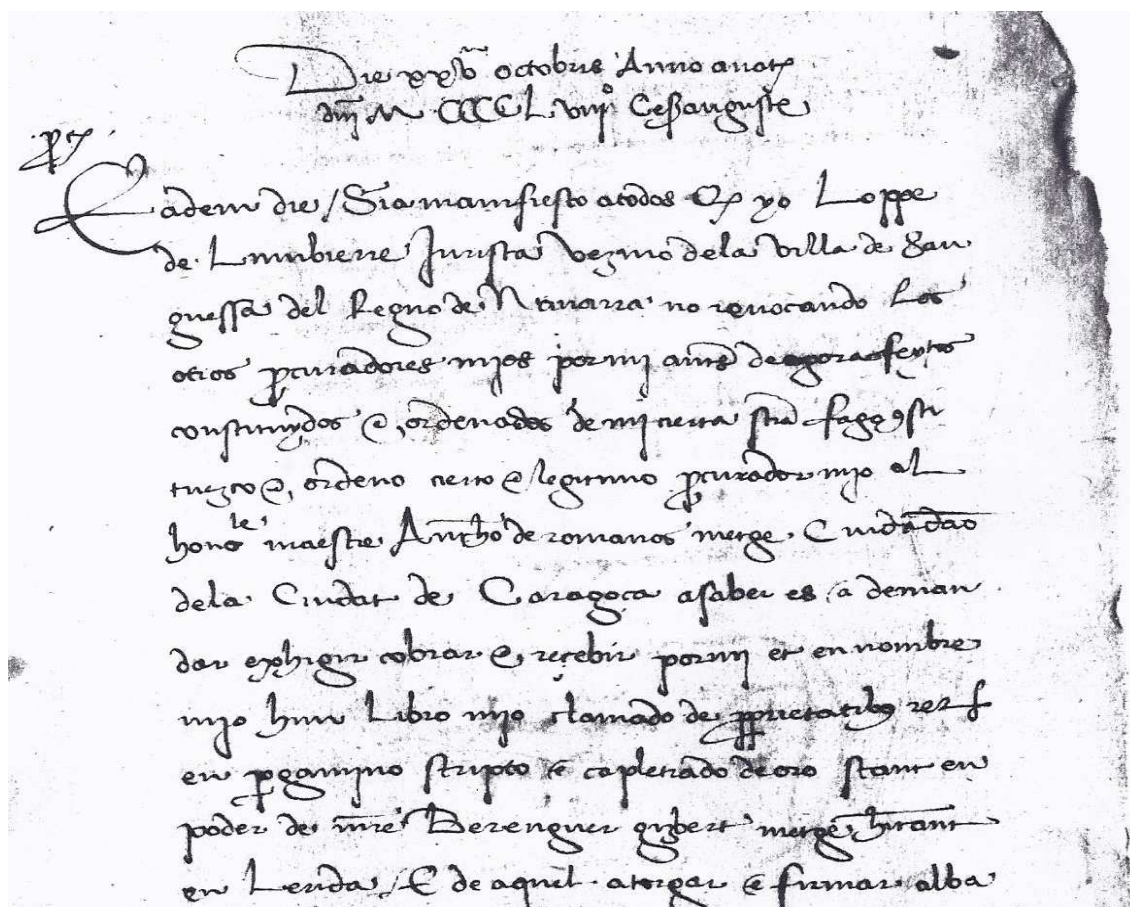 Die xxv octobris Anno a nat
dni M CCCC L viiiº Cesarauguste
Eadem die / Sia manifiesto a todos q yo Loppe
de Lumbierre Jurista vezino dela villa de San
guessa del Regno de Nauarra no reuocando los
otros pcuradores mjos por mj antes de agora feytos
constituydos e ordenados de mj cierta sciencia fago 9sti
tuezco e ordeno cierto e legitimo pcurador mjo al
honole maestre Anthõ de romanos metge Ciudadão
dela Ciudat de Caragoça a saber es a deman
dar exhigir cobrar e reçebir por mj et en nombre
mjo hun Libro mjo clamado de pprietatibus rer
en pgamino scripto e capletrado de oro stant en
poder de mre Berenguer gizbert metge hitant
en Lerida / E de aquel atorgar e firmar alba